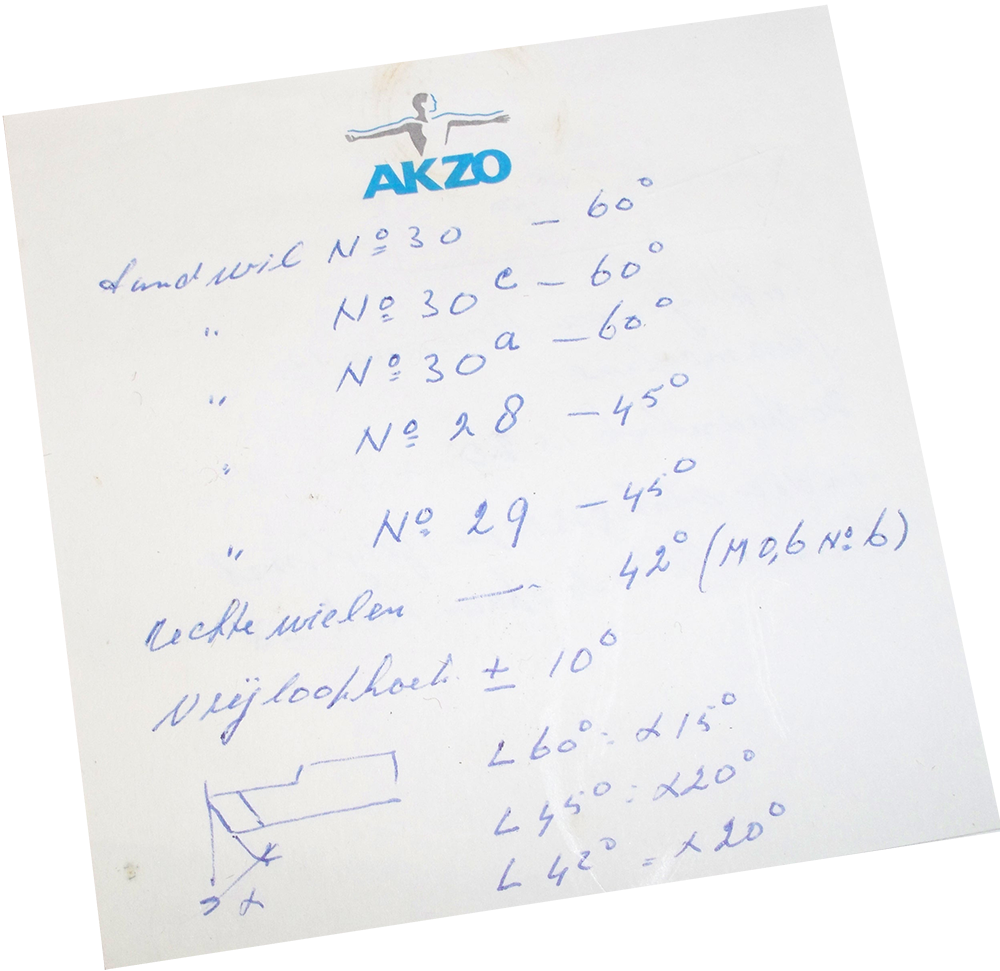 AKZO
tandwiel Nº 30 – 60°
" Nº 30ᶜ – 60°
" Nº 30ᵃ – 60°
" Nº 28 – 45°
" Nº 29 – 45°
rechte wielen — 42° (M 0,6 Nº 6)
Vrijloophoek ± 10°
∠ 60° = α 15°
∠ 45° = α 20°
∠ 42° = α 20°
α